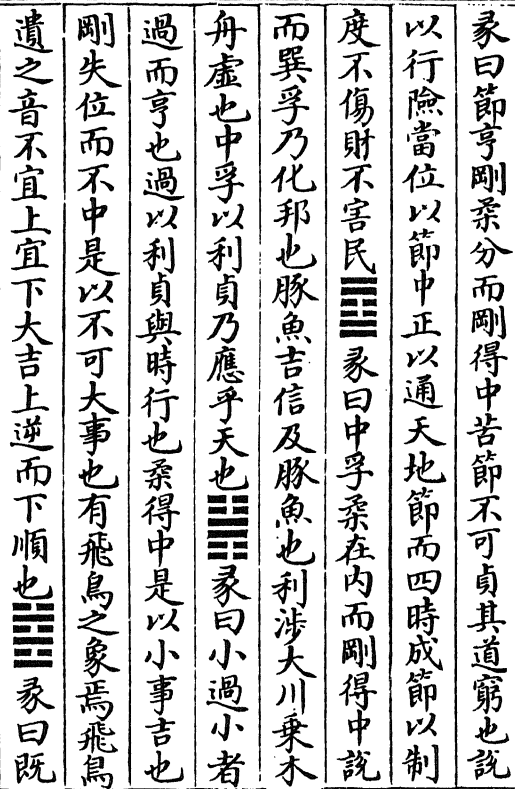 彖曰節亨剛柔分而剛得中苦節不可貞其道窮也説
以行險當位以節中正以通天地節而四時成節以制
度不傷財不害民䷼彖曰中孚柔在内而剛得中説
而巽孚乃化邦也豚魚吉信及豚魚也利涉大川乗木
舟虛也中孚以利貞乃應乎天也䷽彖曰小過小者
過而亨也過以利貞與時行也柔得中是以小事吉也
剛失位而不中是以不可大事也有飛鳥之象焉飛鳥
遺之音不宜上宜下大吉上逆而下順也䷾彖曰既